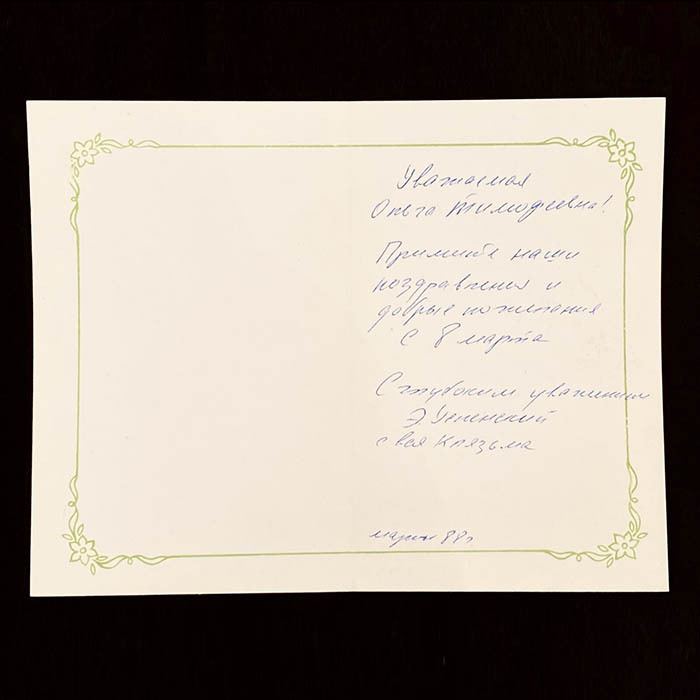 Уважаемая
Ольга Тимофеевна!
Примите наши
поздравления и
добрые пожелания
с 8 марта
С глубоким уважением
Э. Успенский
и вся Клязьма
март 88 г